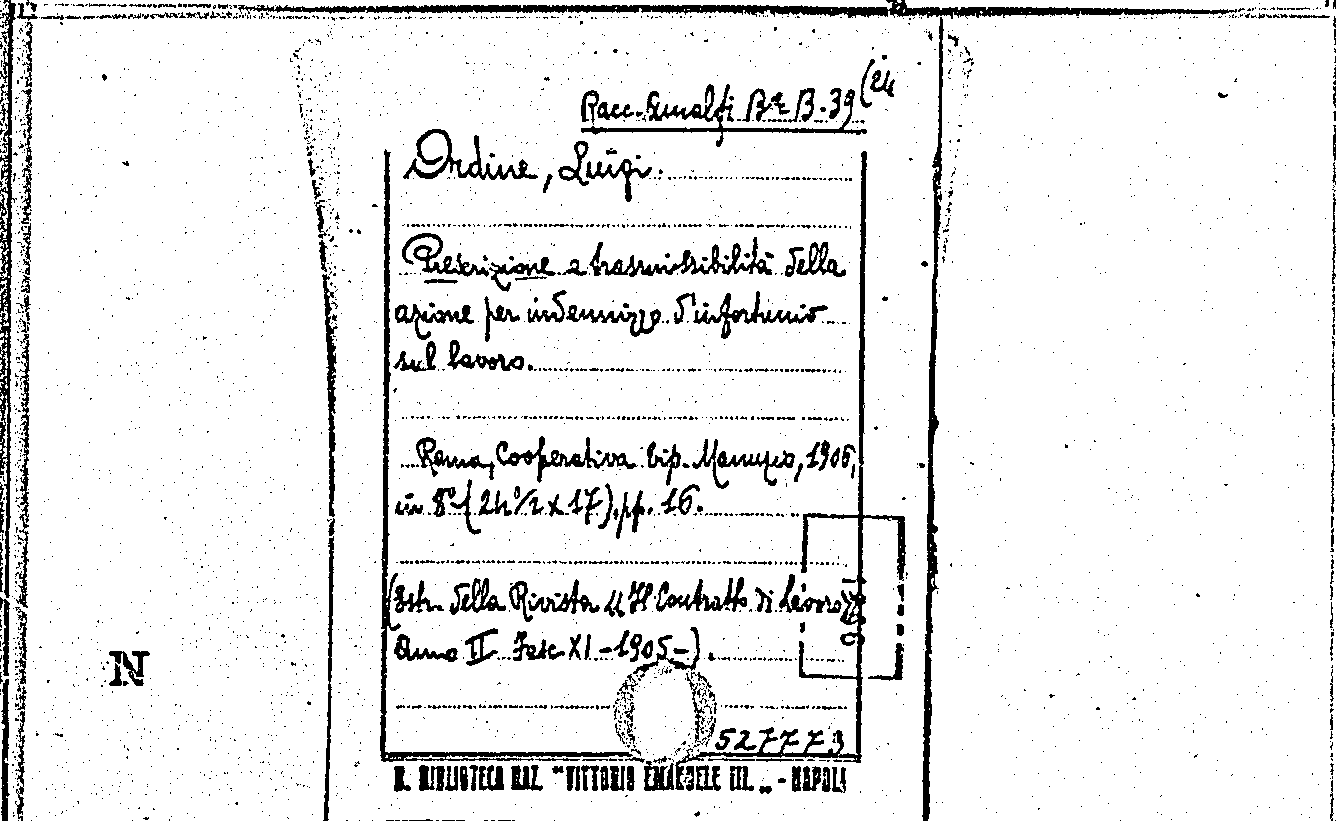 Racc. Amalfi Bª B. 39 (24
Ordine, Luigi.
Prescrizione e trasmissibilità della
azione per indennizzo d'infortunio
sul lavoro.
Roma, Cooperativa tip. Manuzio, 1905,
in 8° (24½ x 17), pp. 16.
(Estr. della Rivista "Il Contratto di Lavoro"
Anno II Fasc XI - 1905 -).
N
527773
R. BIBLIOTECA NAZ. "VITTORIO EMANUELE III. „ - NAPOLI